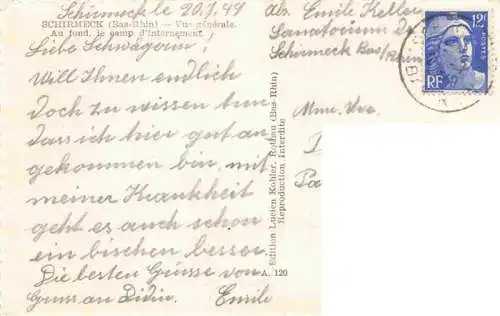 Schirmeck le 20.7.49
SCHIRMECK (Bas-Rhin) — Vue générale.
Au fond, le camp d'internement.
Liebe Schwägerin!
Will Ihnen endlich
doch zu wissen tun
dass ich hier gut an
gekommen bin, mit
meiner Krankheit
geht es auch schon
ein bischen besser.
Die besten Grüsse von
Gruss an Didin. Emile
Edition Lucien Kohler, Rothau (Bas-Rhin)
Reproduction Interdite
A. 120
Abs. Emile Keller
Sanatorium
Schirmeck Bas/Rhin
Mme. Vve.
12F
POSTES
RF